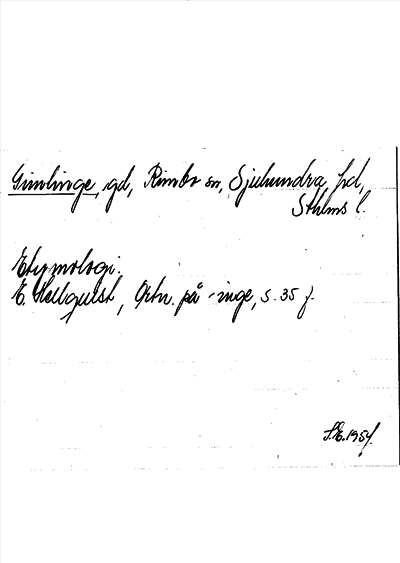 Gimlinge, gd, Rimbo sn, Sjuhundra hd,
Sthlms l.
Etymologi.
E. Hellquist, Ortn. på -inge, s. 35 f.
S.E. 1954.